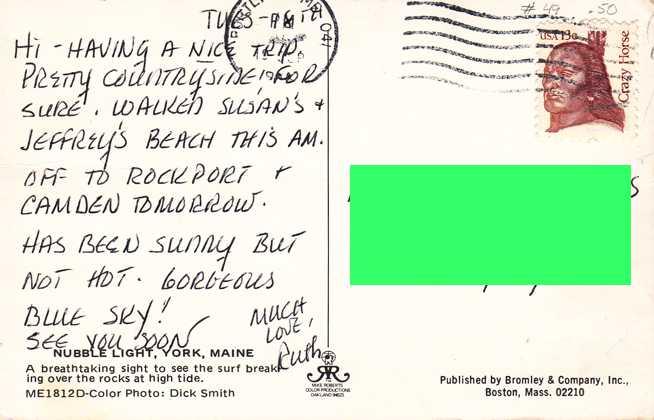 TUES-
HI - HAVING A NICE TRIP,
PRETTY COUNTRYSIDE, FOR
SURE. WALKED SUSAN'S +
JEFFREY'S BEACH THIS AM.
OFF TO ROCKPORT +
CAMDEN TOMORROW.
HAS BEEN SUNNY BUT
NOT HOT. GORGEOUS
BLUE SKY!
SEE YOU SOON
MUCH
LOVE,
Ruth
NUBBLE LIGHT, YORK, MAINE
A breathtaking sight to see the surf break-
ing over the rocks at high tide.
ME1812D-Color Photo: Dick Smith
MIKE ROBERTS
COLOR PRODUCTIONS
OAKLAND 94623
# 49 .50
USA 13c
Crazy Horse
PM
Published by Bromley & Company, Inc.,
Boston, Mass. 02210